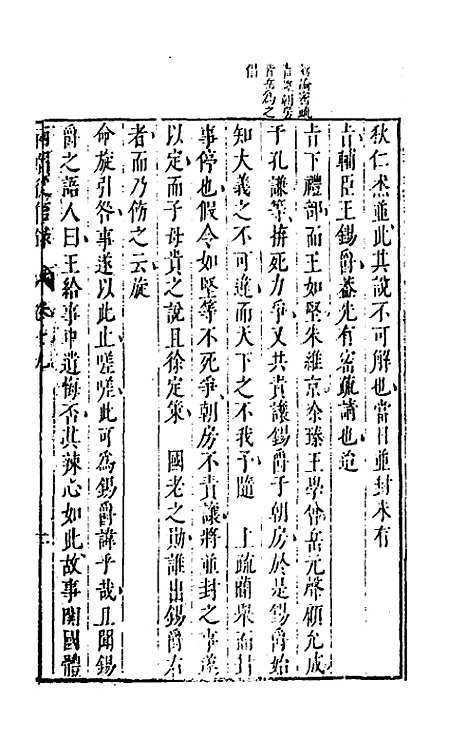 狄仁杰並此其說不可解也當日並封未有
旨輔臣王錫爵蓋先有密疏請也迨
旨下禮部而王如堅朱維京涂臻王學伸岳元聲顧允成
于孔謙等拚死力爭又共責讓錫爵于朝房於是錫爵始
知大義之不可違而天下之不我予隨 上疏
事停也假令如堅等不死爭朝房不責讓將並封之事遂
以定而子母貴之說且徐定策 國老之勛誰出錫爵右
者而乃傷之云旋
命旋引咎事遂以此止嗟嗟此可為錫爵諱乎哉且聞錫
爵之語人曰王給事中遺悔否其辣心如此故事關國體